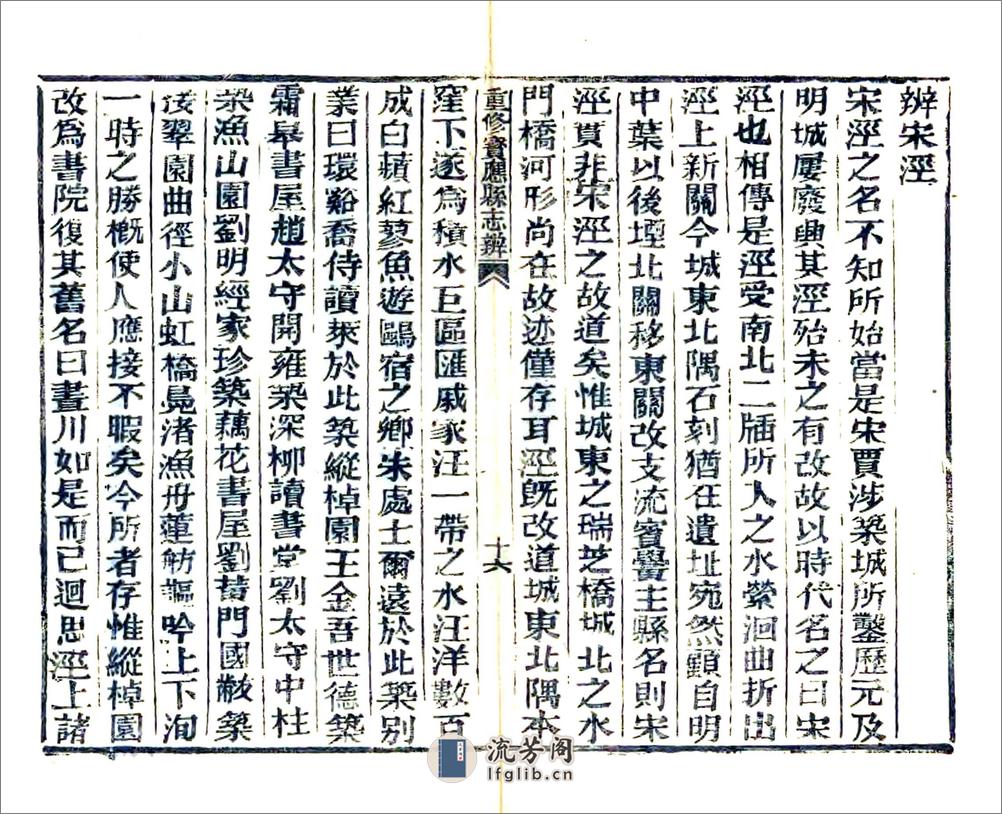 辨宋涇
宋涇之名不知所始當是宋賈涉築城所鑿歷元及
明城屢廢興其涇殆未之有改故以時代名之曰宋
涇也相傳是涇受南北二牐所入之水縈洄曲折出
涇上新關今城東北隅石刻猶在遺址宛然顧自明
中葉以後堙北關移東關改支流賓黌主縣名則宋
涇實非宋涇之故道矣惟城東之瑞芝橋城北之水
門橋河形尚在故迹僅存耳涇旣改道城東北隅本
重修寶應縣志辨
十六
窪下遂爲積水巨區匯戚家汪一帶之水汪洋數百
成白蘋紅蓼魚遊鷗宿之鄉朱處士爾遠於此築别
業曰環谿喬侍讀萊於此築縱棹園王金吾世德築
霜皋書屋趙太守開雍築深柳讀書堂劉太守中柱
築漁山園劉明經家珍築藕花書屋劉黃門國黻築
淩翠園曲徑小山虹橋鳧渚漁舟蓮舫謳吟上下洵
一時之勝概使人應接不暇矣今所者存惟縱棹園
改爲書院復其舊名曰畫川如是而已迴思涇上諸
流芳阁
lfglib.cn